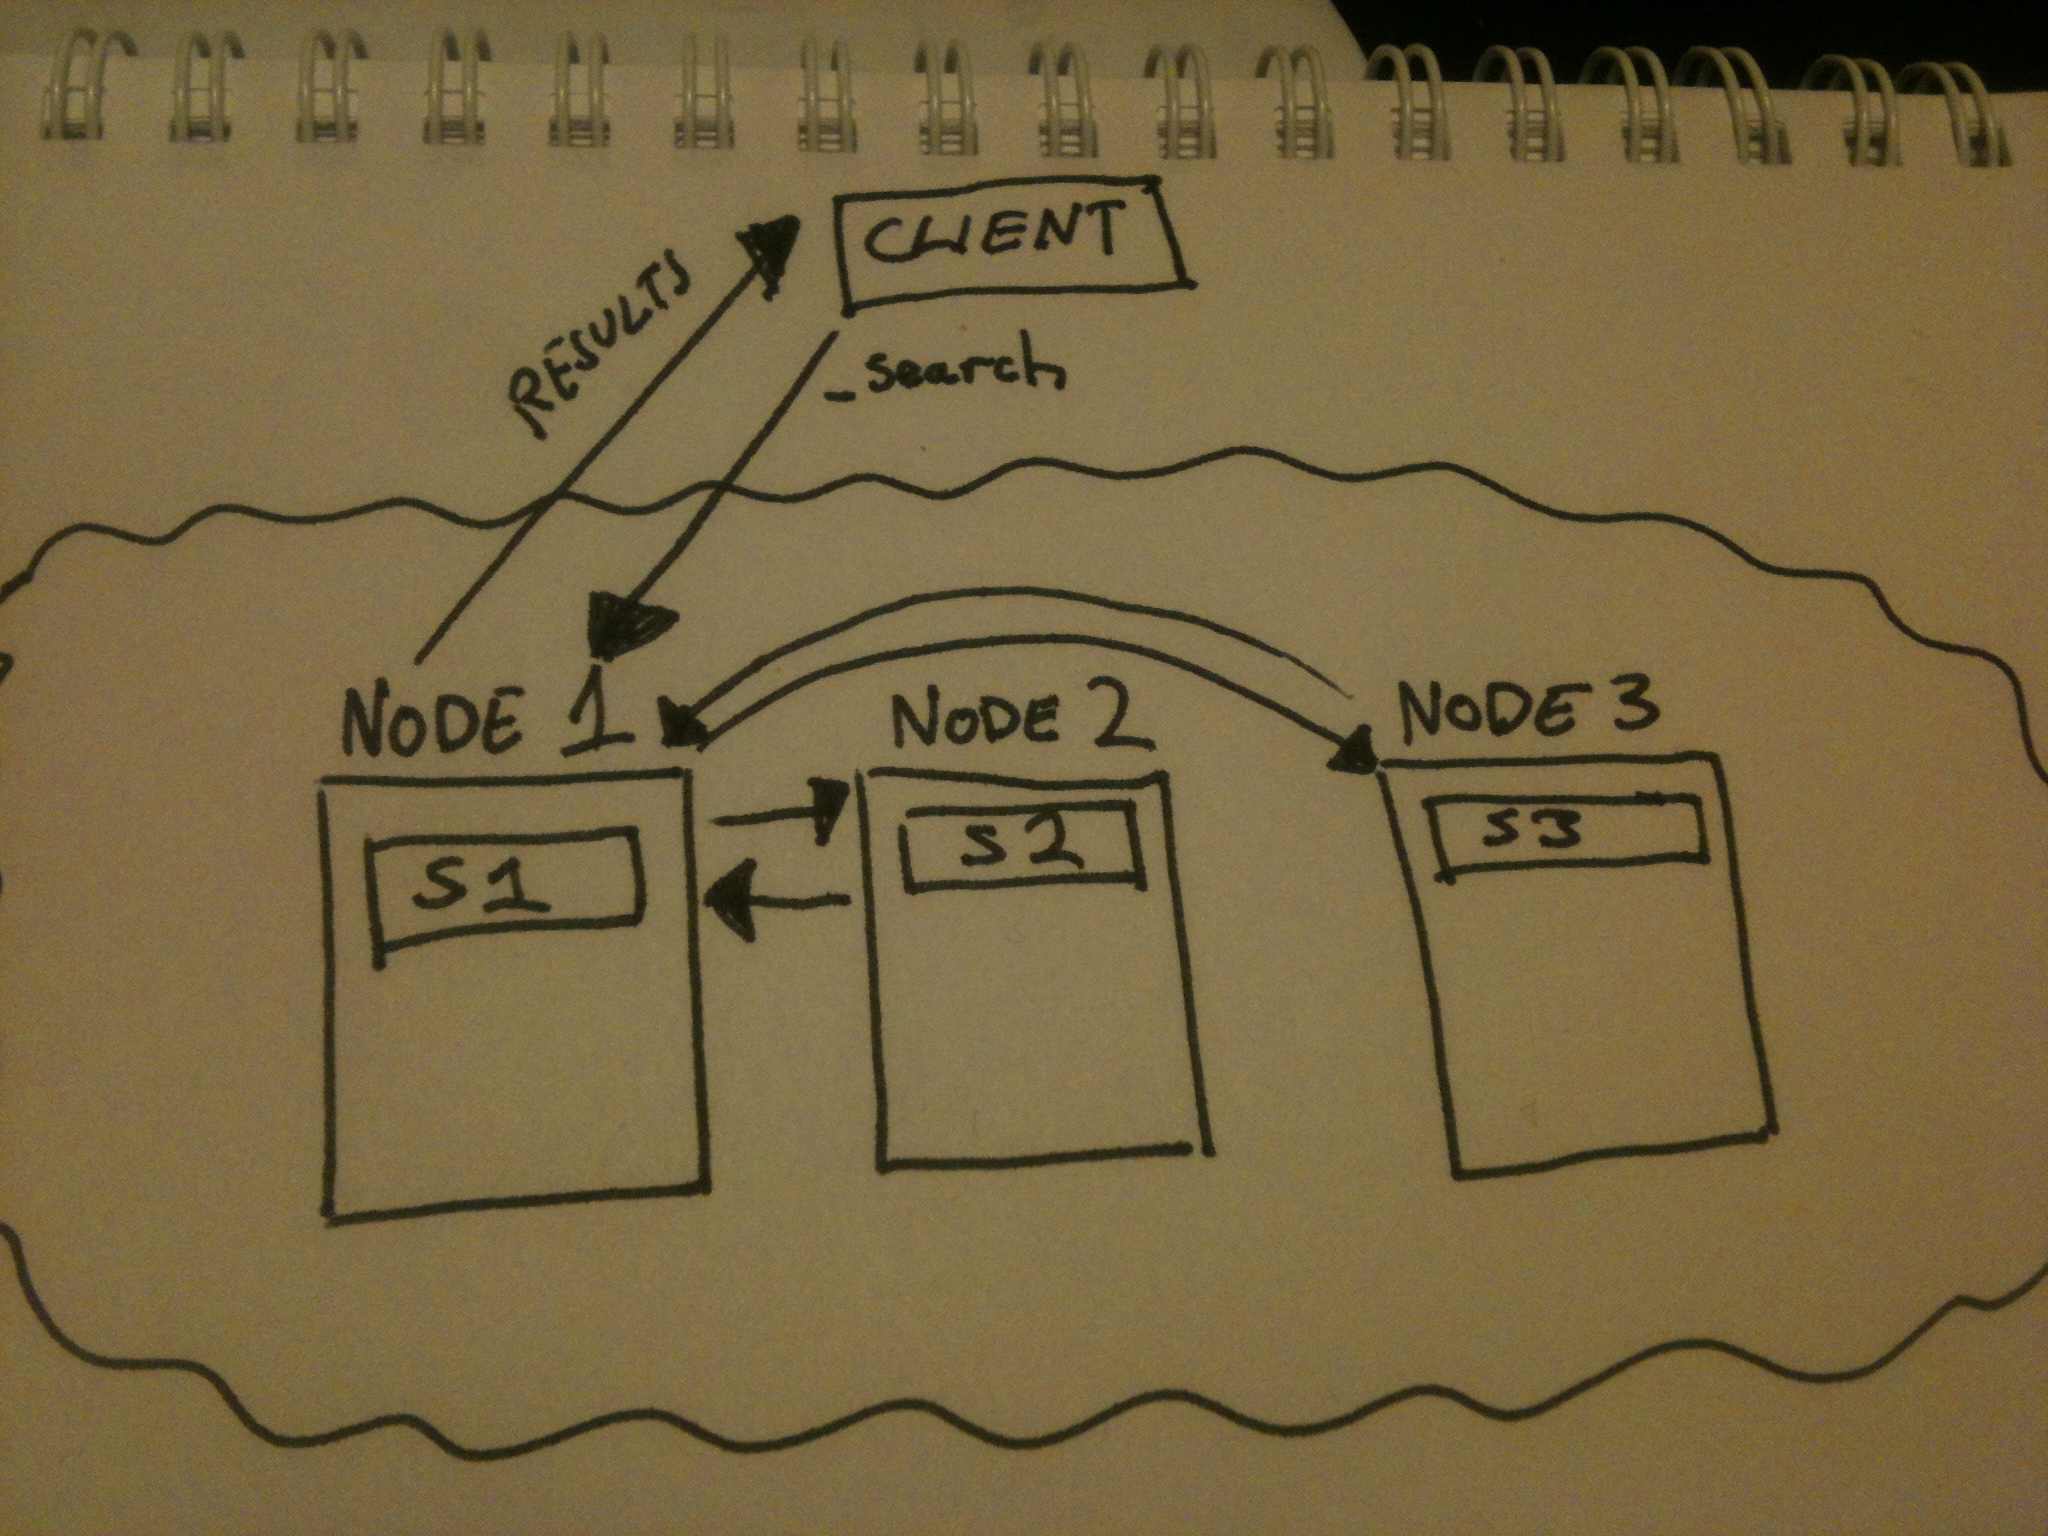 CLIENT
RESULTS
_search
NODE 1
NODE 2
NODE 3
S1
S2
S3